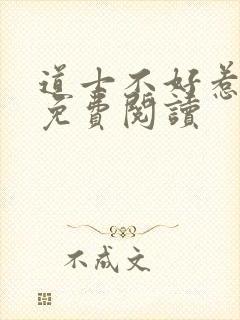 道士不好惹
免費閱讀
不成文